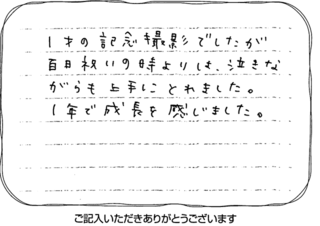 1才の記念撮影でしたが
百日祝いの時よりは、泣きな
がらも上手にとれました。
1年で成長を感じました。
ご記入いただきありがとうございます